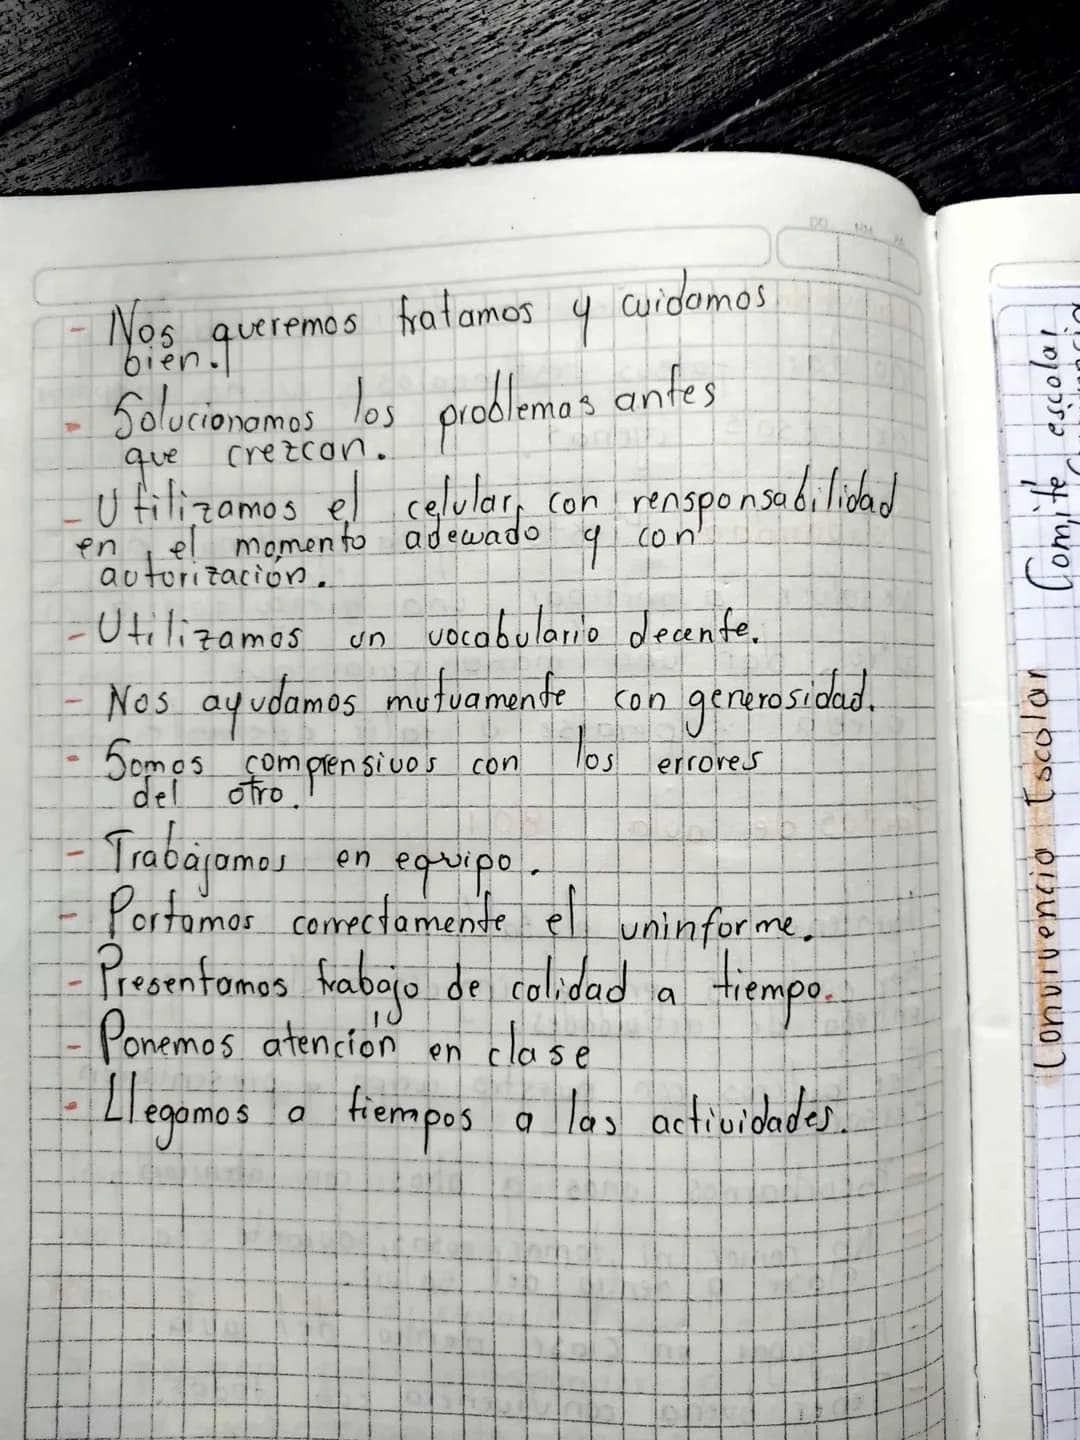 - Nos queremos tratamos y cuidamos
bien.
- Solucionamos los problemas antes
que crezcan.
- Utilizamos el celular, con rensponsabilidad
en el momento adewado y con
autorización.
- Utilizamos un vocabulario decente.
- Nos ayudamos mutuamente con generosidad.
- Somos comprensivos con los errores
del otro.
- Trabajamos en equipo.
- Portamos correctamente el uninforme.
- Presentamos trabajo de calidad a tiempo.
- Ponemos atención en clase
- Llegamos a tiempos a las actividades.
DD MM AA
Comité escolar
Convivencia Escolar